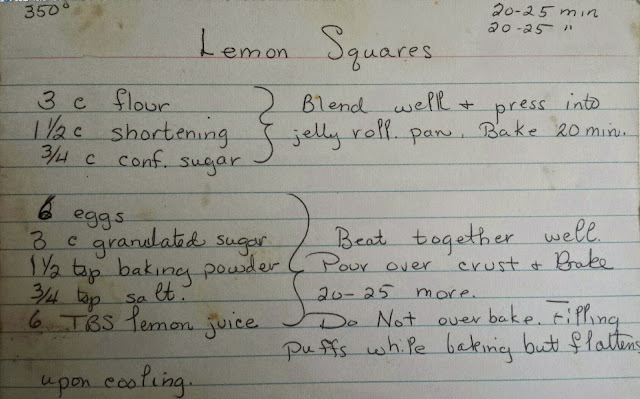 350°
20-25 min
20-25 "
Lemon Squares
3 c flour
1 1/2 c shortening
3/4 c conf. sugar
Blend well + press into
jelly roll pan. Bake 20 min.
6 eggs
3 c granulated sugar
1 1/2 tsp baking powder
3/4 tsp salt.
6 TBS lemon juice
Beat together well.
Pour over crust + Bake
20-25 more.
Do Not overbake. Filling
puffs while baking but flattens
upon cooling.